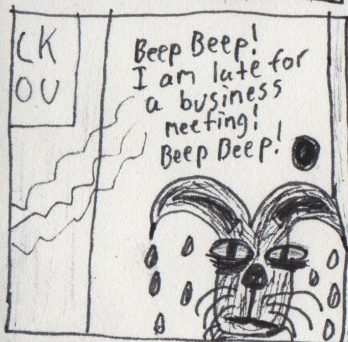 CK
OU
Beep Beep!
I am late for
a business
meeting!
Beep Beep!